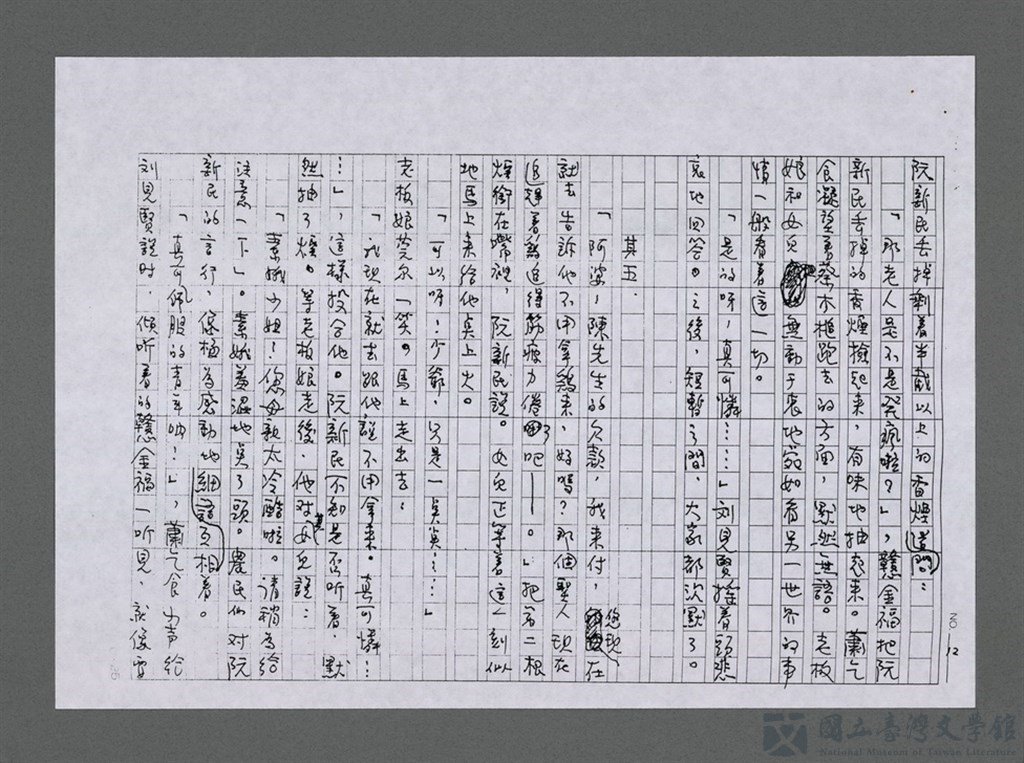 阮新民丢掉剩着半截以上的香煙道問：
「那老人是不是発瘋啦？」，戇金福把阮
新民丢掉的香煙撿起来，有味地抽起来。蕭乞
食凝望勇蔡木槌跑去的方面，默然無語。老板
娘和女兒無動于衷地宛如看另一世界的事
情一般看着這一切。
「是的呀，真可憐……」刘見賢搖着頭悲
哀地回答。之後，短暫之間，大家都沈默了。
其五．
「阿婆，陳先生的欠款，我来付，您現在
就去告訴他不用拿鷄来，好嗎？那個聖人現在
追趕着鷄追得筋疲力倦了吧——。」把第二根
煙銜在嘴裡，阮新民説。女兒正等着這一刻似
地馬上来给他点上火。
「可以呀！少爺，只是一点点……」
老板娘莞尔一笑。馬上走出去：
「我現在就去跟他説不用拿来。真可憐…
…」，這樣投合他。阮新民不知是否听着，默
然抽了煙。等老板娘走後，他对其女兒説：
「素娥小姐！您母親太冷酷啦。请稍為给
注意一下」。素娥羞澀地点了頭。農民们对阮
新民的言行，像極為感動地細語互相着。
「真可佩服的青年呐！」，蕭乞食出声给
刘見賢説时，傾听着的戇金福一听見，就像雷
30/12
國立臺灣文學館
National Museum of Taiwan Literature